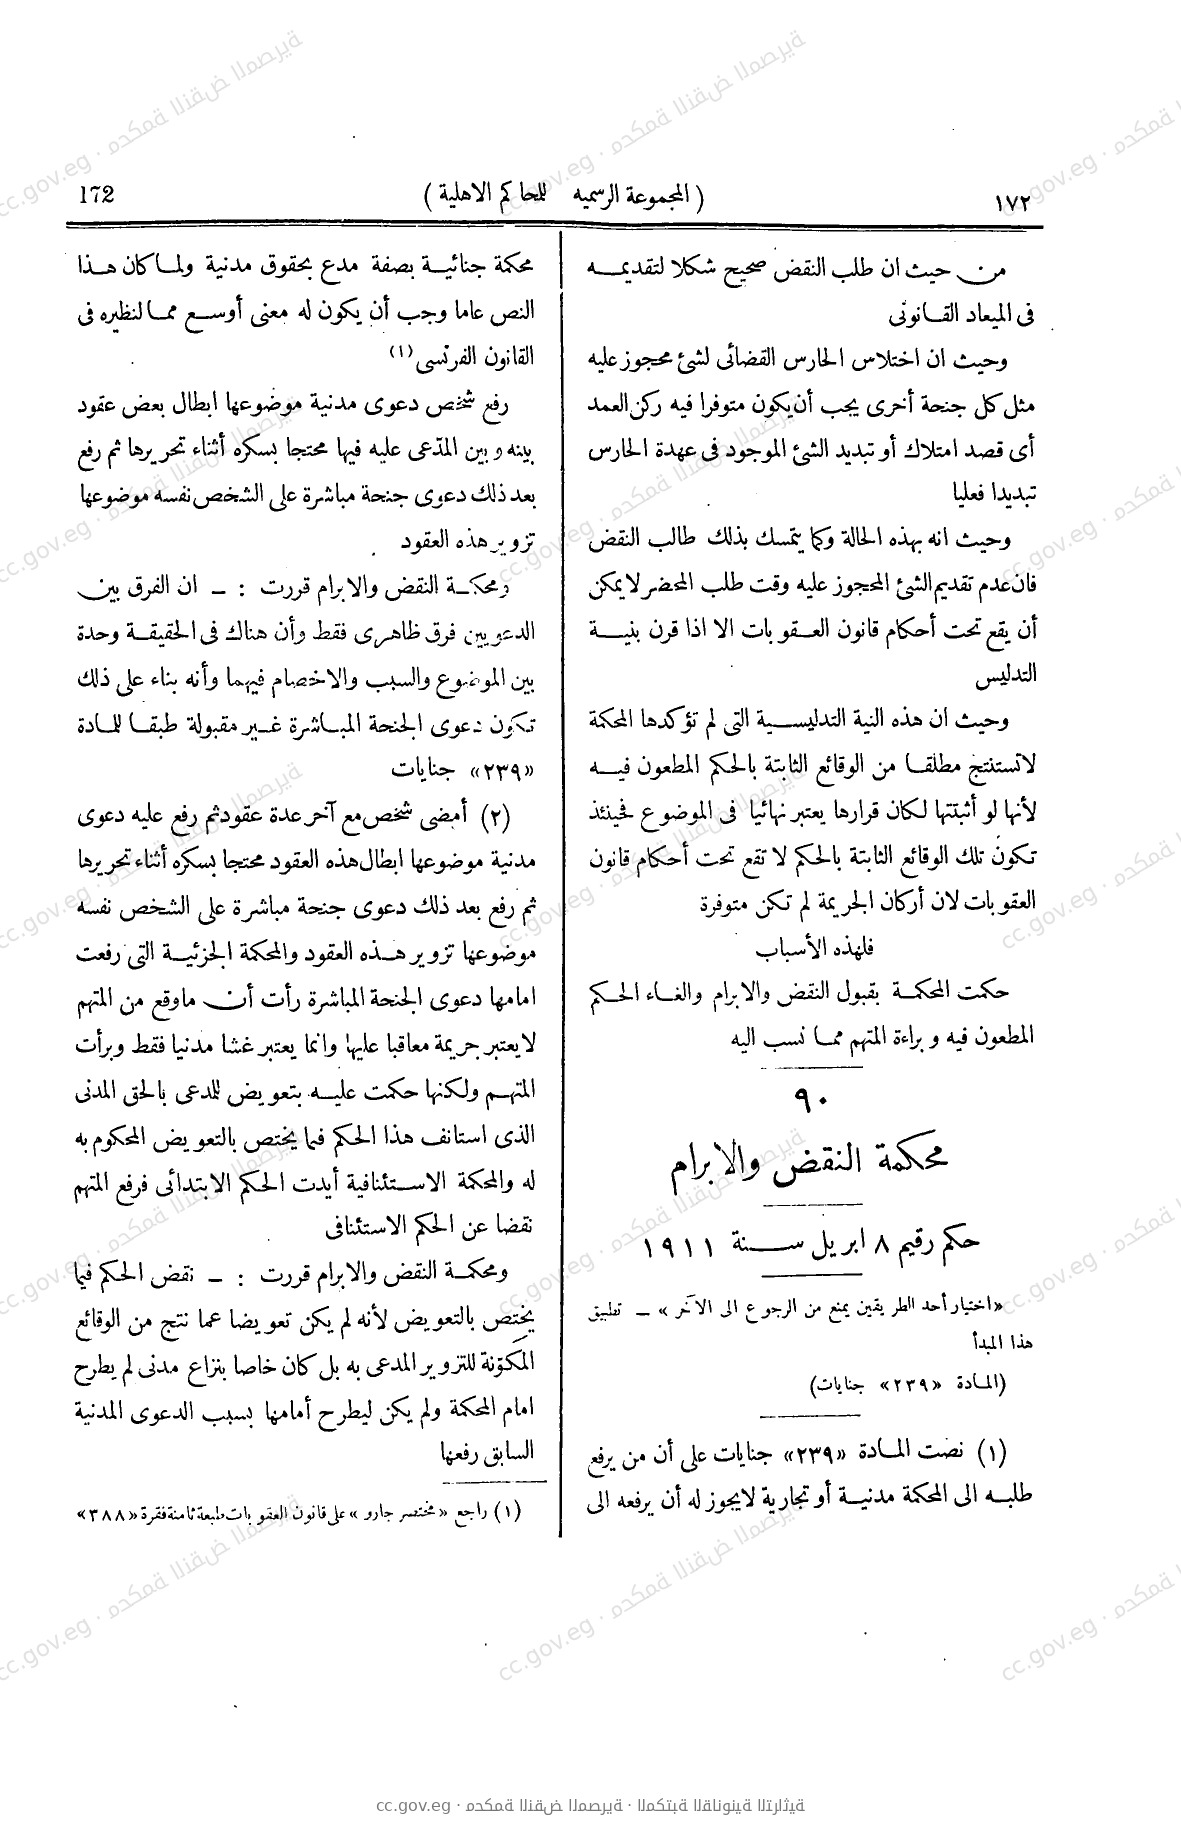 ١٧٢
( المجموعة الرسمية للمحاكم الاهلية )
172
من حيث ان طلب النقض صحيح شكلا لتقديمه
فى الميعاد القانونى
وحيث ان اختلاس الحارس القضائى لشئ محجوز عليه
مثل كل جنحة أخرى يجب أن يكون متوفرا فيه ركن العمد
أى قصد امتلاك أو تبديد الشئ الموجود فى عهدة الحارس
تبديدا فعليا
وحيث انه بهذه الحالة وكما يتمسك بذلك طالب النقض
فان عدم تقديم الشئ المحجوز عليه وقت طلب المحضر لا يمكن
أن يقع تحت أحكام قانون العقوبات الا اذا قرن بنية
التدليس
وحيث ان هذه النية التدليسية التى لم تؤكدها المحكمة
لا تستنتج مطلقا من الوقائع الثابتة بالحكم المطعون فيه
لأنها لو أثبتتها لكان قرارها يعتبر نهائيا فى الموضوع فحينئذ
تكون تلك الوقائع الثابتة بالحكم لا تقع تحت أحكام قانون
العقوبات لان أركان الجريمة لم تكن متوفرة
فلهذه الأسباب
حكمت المحكمة بقبول النقض والابرام والغاء الحكم
المطعون فيه وبراءة المتهم مما نسب اليه
٩٠
محكمة النقض والابرام
حكم رقيم ٨ ابريل سنة ١٩١١
«اختيار أحد الطريقين يمنع من الرجوع الى الآخر» – تطبيق
هذا المبدأ
(المادة «٢٣٩» جنايات)
(١) نصت المادة «٢٣٩» جنايات على أن من يرفع
طلبه الى المحكمة مدنية أو تجارية لا يجوز له أن يرفعه الى
محكمة جنائية بصفة مدع بحقوق مدنية ولما كان هذا
النص عاما وجب أن يكون له معنى أوسع مما لنظيره فى
القانون الفرنسى (١)
رفع شخص دعوى مدنية موضوعها ابطال بعض عقود
بينه وبين المدّعى عليه فيها محتجا بسكره أثناء تحريرها ثم رفع
بعد ذلك دعوى جنحة مباشرة على الشخص نفسه موضوعها
تزوير هذه العقود
ومحكمة النقض والابرام قررت : – ان الفرق بين
الدعويين فرق ظاهرى فقط وأن هناك فى الحقيقة وحدة
بين الموضوع والسبب والاخصام فيهما وأنه بناء على ذلك
تكون دعوى الجنحة المباشرة غير مقبولة طبقا للمادة
«٢٣٩» جنايات
(٢) أمضى شخص مع آخر عدة عقود ثم رفع عليه دعوى
مدنية موضوعها ابطال هذه العقود محتجا بسكره أثناء تحريرها
ثم رفع بعد ذلك دعوى جنحة مباشرة على الشخص نفسه
موضوعها تزوير هذه العقود والمحكمة الجزئية التى رفعت
امامها دعوى الجنحة المباشرة رأت أن ما وقع من المتهم
لا يعتبر جريمة معاقبا عليها وانما يعتبر غشا مدنيا فقط وبرأت
المتهم ولكنها حكمت عليه بتعويض للمدعى بالحق المدنى
الذى استانف هذا الحكم فيما يختص بالتعويض المحكوم به
له والمحكمة الاستئنافية أيدت الحكم الابتدائى فرفع المتهم
نقضا عن الحكم الاستئنافى
ومحكمة النقض والابرام قررت : – نقض الحكم فيما
يختص بالتعويض لأنه لم يكن تعويضا عما نتج من الوقائع
المكوّنة للتزوير المدعى به بل كان خاصا بنزاع مدنى لم يطرح
امام المحكمة ولم يكن ليطرح أمامها بسبب الدعوى المدنية
السابق رفعها
(١) راجع «مختصر جارو» على قانون العقوبات طبعة ثامنة فقرة «٣٨٨»
cc.gov.eg · محكمة النقض المصرية · المكتبة القانونية التراثية